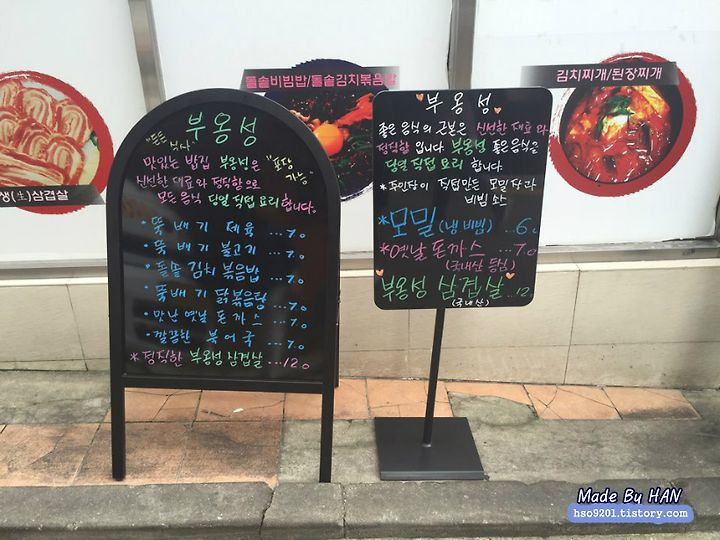 돌솥비빔밥/돌솥김치볶음밥
김치찌개/된장찌개
생(生)삼겹살
부옹성
"든든 식사"
"포장 가능"
맛있는 밥집 부옹성은
신선한 재료와 정직함으로
모든 음식 당일 직접 요리합니다.
·뚝배기 제육 ...7.0
·뚝배기 불고기 ...7.0
·돌솥 김치 볶음밥 ...7.0
·뚝배기 닭볶음탕 ...7.0
·맛난 옛날 돈까스 ...7.0
·깔끔한 북어국 ...7.0
*정직한 부옹성 삼겹살 ...12.0
부옹성
좋은 음식의 근본은 신선한 재료와
정직함 입니다. 부옹성 좋은음식을
당일 직접 요리 합니다.
*주인장이 직접만든 모밀장과
비빔 소스
*모밀(냉비빔) ...6.0
*옛날 돈까스 ...7.0
(국내산 등심)
부옹성 삼겹살 ...12.
(국내산)
Made By HAN
hso9201.tistory.com